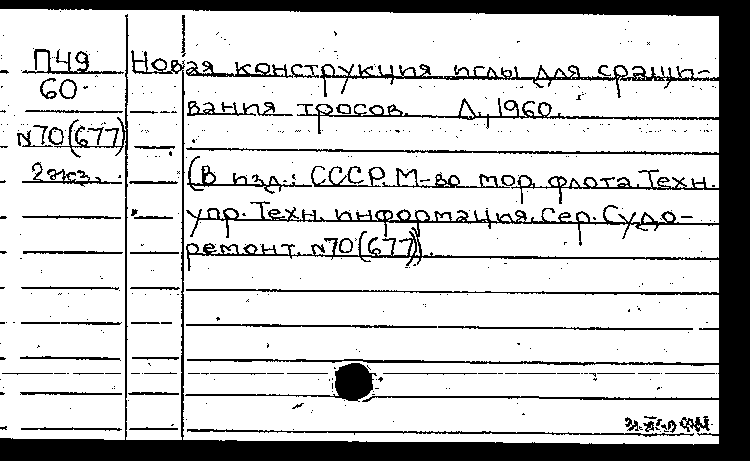 П49
60
N70(677)
2экз.
Новая конструкция иглы для сращи-
вания тросов. Л., 1960.
(В изд.: СССР. М-во мор. флота. Техн.
упр. Техн. информация. Сер. Судо-
ремонт. N70(677)).